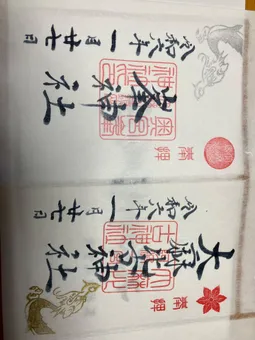 奉拝
峯神社
令和六年一月廿七日
奉拝
大麻比古神社
令和六年一月廿七日